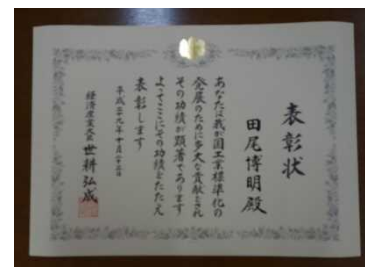 表彰状
田尾博明殿
あなたは我が国工業標準化の
発展のために多大な貢献をされ
その功績が顕著であります
よってここにその功績をたたえ
表彰します
平成二十九年十月
経済産業大臣 世耕弘成